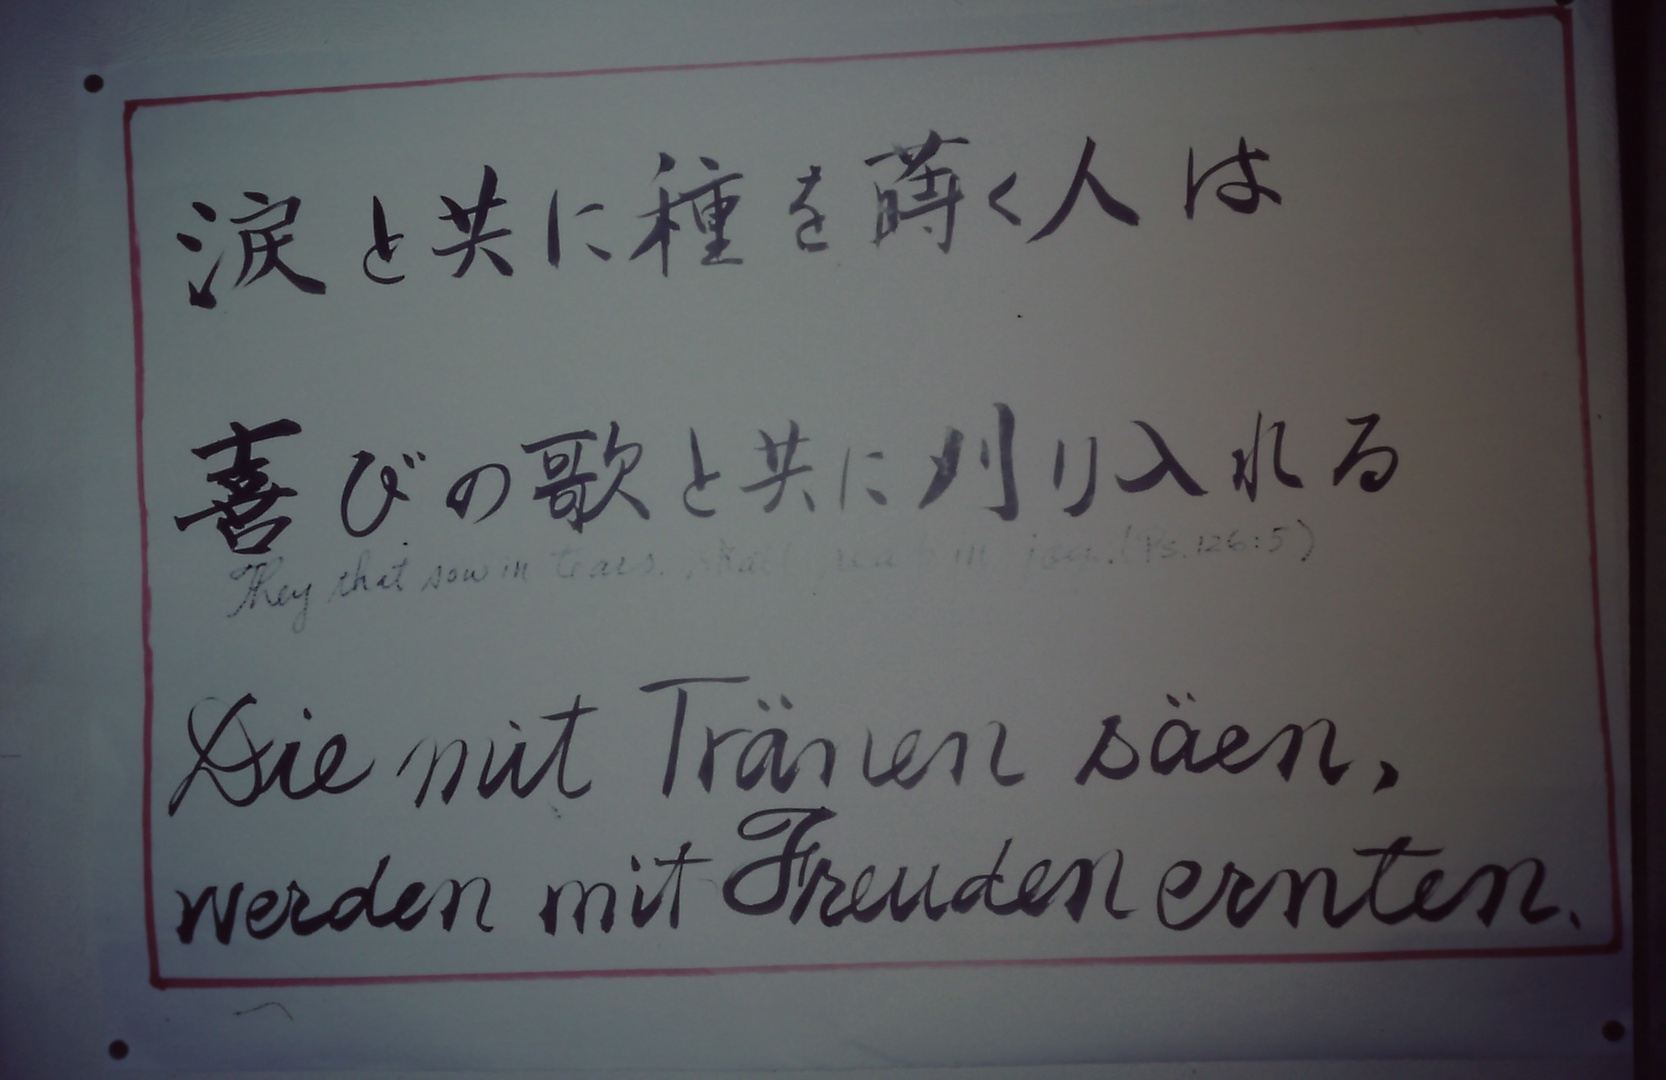 涙と共に種を蒔く人は
喜びの歌と共に刈り入れる
They that sow in tears. shall reap in joy. (Ps. 126:5)
Die mit Tränen säen,
werden mit Freuden ernten.